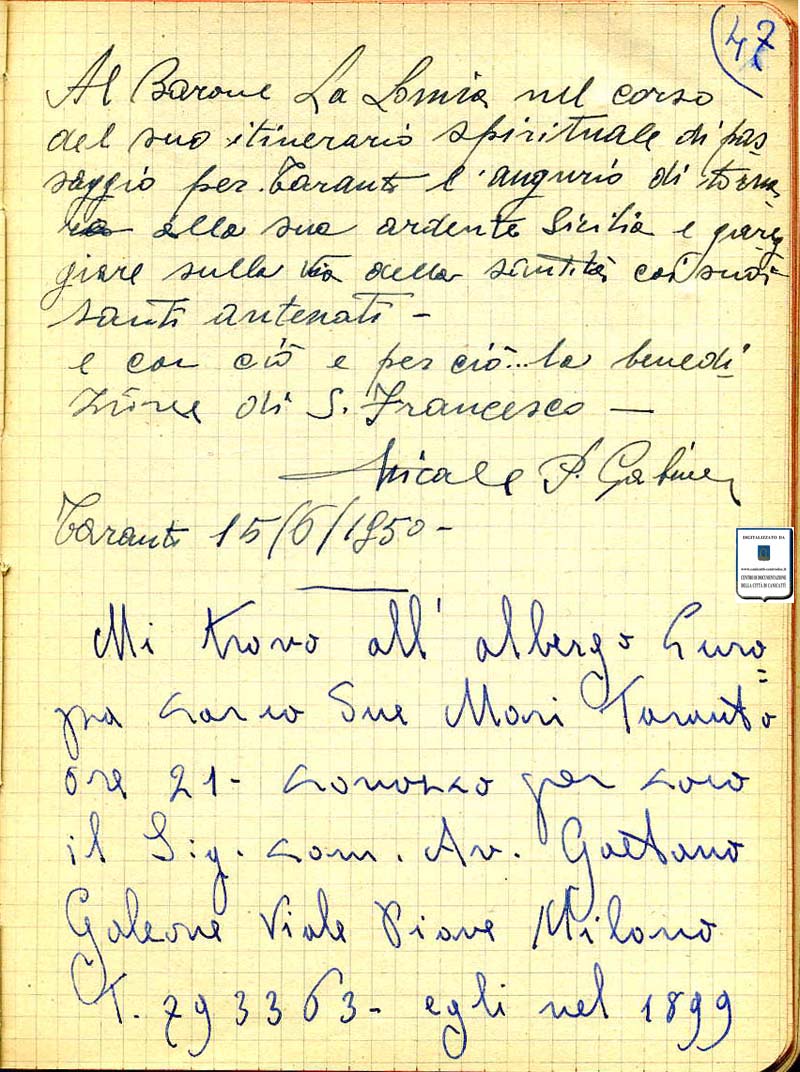 47
Al Barone La Lomia nel corso
del suo itinerario spirituale di pas
saggio per Taranto l'augurio di torna
re alla sua ardente Sicilia e gareg
giare sulla via della santità coi suoi
santi antenati -
e con ciò e per ciò... la benedi
zione di S. Francesco —
Micale P.
Taranto 15/6/1950 -
DIGITALIZZATO DA
www.canicatti-centrodoc.it
CENTRO DI DOCUMENTAZIONE
DELLA CITTÀ DI CANICATTÌ
Mi trovo all'albergo Euro=
pa corso Due Mari Taranto
ore 21 - conosco per caso
il Sig. com. Av. Gaetano
Galeone Viale Piave Milano
T. 793363 - egli nel 1899